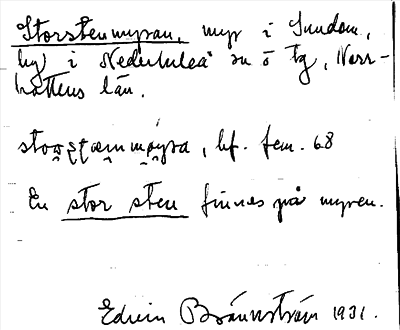 Storstenmyran, myr i Sundom,
by i Nederluleå sn o tg, Norr-
bottens län.
stor stæmmøyra, bf. fem. 68
En stor sten finnes på myren.
Edvin Brännström 1931.